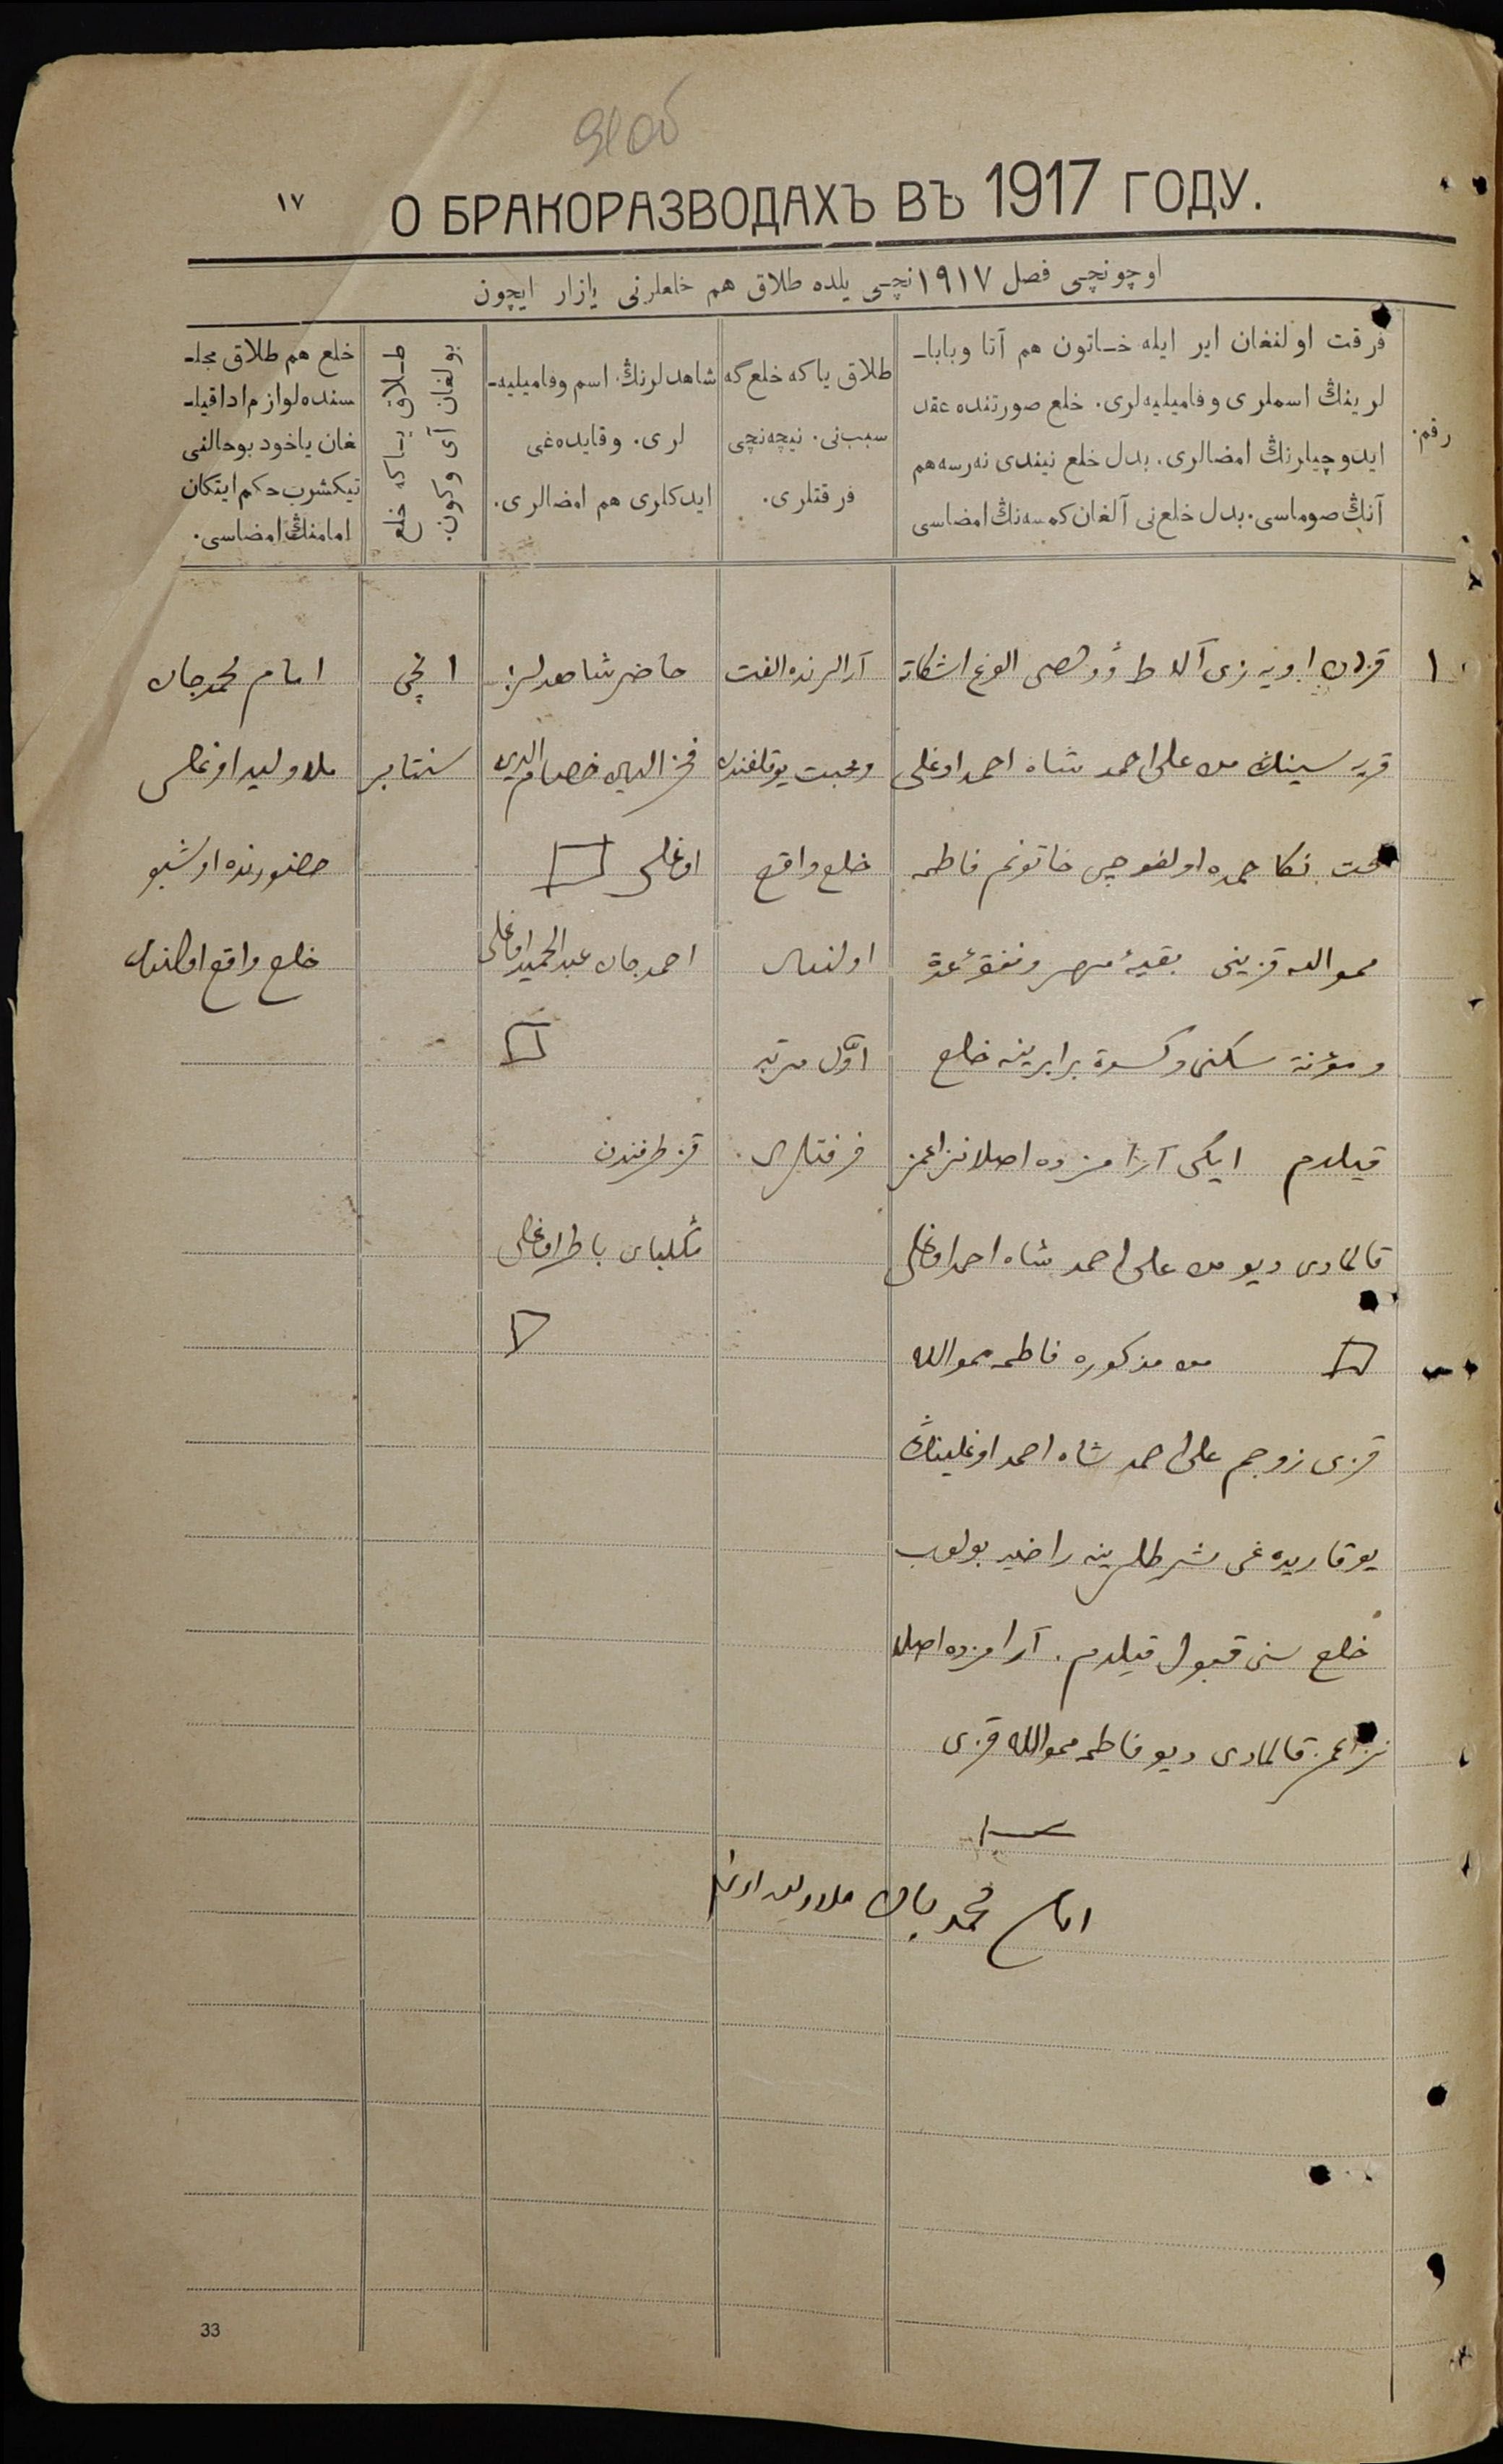 91 об
١٧
О БРАКОРАЗВОДАХЪ ВЪ 1917 ГОДУ.
اوچونچی فصل ١٩١٧ نچی یلده طلاق هم خلعلرنی یازار ایچون
رقم.
فرقت اولنغان ایر ایله خاتون هم آتا وبابا-
لرینڭ اسملری وفامیلیه‌لری. خلع صورتنده عقد
ایدوچیلرنڭ امضالری. بدل خلع نیندی نه‌رسه هم
آنڭ صوماسی. بدل خلع‌نی آلغان کمسه‌نڭ امضاسی
طلاق یاکه خلع‌گه
سبب‌نی. نیچه‌نچی
فرقتلری.
شاهدلرنڭ اسم وفامیلیه-
لری. وقایده‌غی
ایدکلری هم امضالری.
طلاق یاکه خلع
بولغان آی وکون.
خلع هم طلاق مجلـ
سنده لوازم ادا قیلـ
غان یاخود بوحالنی
تیکشرب حکم ایتکان
امامنڭ امضاسی.
١
قزان اویه‌زی آلاط وولصی الوغ اشکات
قریه سینڭ من علی احمد شاه احمد اوغلی
تحت نکاحمده اولغوچی خاتونم فاطمه
محوالله قزینی بقیهٔ مهر ونفقهٔ عدة
ومؤنة سکنی وکسوة برابرینه خلع
قیلدم ایکی آرامزده اصلا نزاعمز
قالمادی دیو من علی احمد شاه احمد اوغلی
من مذکوره فاطمه محوالله
قزی زوجم علی احمد شاه احمد اوغلینڭ
یوقاریده‌غی شرطلرینه راضیه بولوب
خلع سنی قبول قیلدم. آرامزده اصلا
نزاعمز قالمادی دیو فاطمه محوالله قزی
آرالرنده الفت
ومحبت یوقلغندن
خلع واقع
اولندی
اوّل مرتبه
فرقتلری.
حاضر شاهدلرز
فخرالدین حسام الدین
اوغلی
احمدجان عبدالحمید اوغلی
قز طرفندن
باطر اوغلی
١ نچی
سنتابر
امام محمدجان
ملا ولید اوغلی
حضورنده اوشبو
خلع واقع اولندی
امام محمد جان ملا ولید اوغلی
33